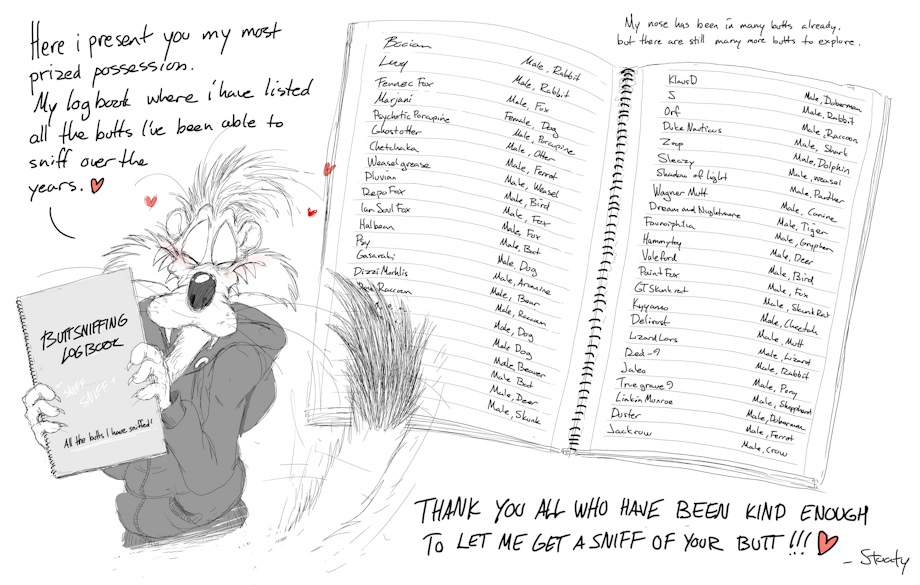 Here i present you my most
prized possession.
My logbook where i have listed
all the butts I've been able to
sniff over the
years.
BUTTSNIFFING
LOGBOOK
SNIFF
SNIFF
All the butts I have sniffed!
My nose has been in many butts already.
but there are still many more butts to explore.
Bocian Male, Rabbit
Lucy Male, Rabbit
Fennec Fox Male, Fox
Marjani Female, Dog
Psychotic Porcupine Male, Porcupine
Ghostotter Male, Otter
Chetchaka Male, Ferret
Weaselgrease Male, Weasel
Pluvian Male, Bird
Repo Fox Male, Fox
Ian Soul Fox Male, Fox
Halbean Male, Bat
Psy Male, Dog
Gasaraki Male, Arcanine
Dizzi Marblis Male, Bear
Raccoon Male, Raccoon
Male, Dog
Male, Dog
Male, Beaver
Male, Bat
Male, Deer
Male, Skunk
KlausD Male, Doberman
S Male, Rabbit
Orf Male, Raccoon
Duke Nauticus Male, Shark
Zoop Male, Dolphin
Sleazy Male, Weasel
Shadow of light Male, Panther
Wagner Mutt Male, Canine
Dream and Nightmare Male, Tiger
Male, Gryphon
Hammytoy Male, Deer
Valeford Male, Bird
Paint Fox Male, Fox
GT Skunkrat Male, Skunk Rat
Kyyanno Male, Cheetah
Delirost Male, Mutt
Lizard Lars Male, Lizard
Red-9 Male, Rabbit
Jaleo Male, Pony
Truegrave9 Male, Shepherd
Linkin Monroe Male, Doberman
Duster Male, Ferret
Jackrow Male, Crow
THANK YOU ALL WHO HAVE BEEN KIND ENOUGH
TO LET ME GET A SNIFF OF YOUR BUTT!!!
- Stooty